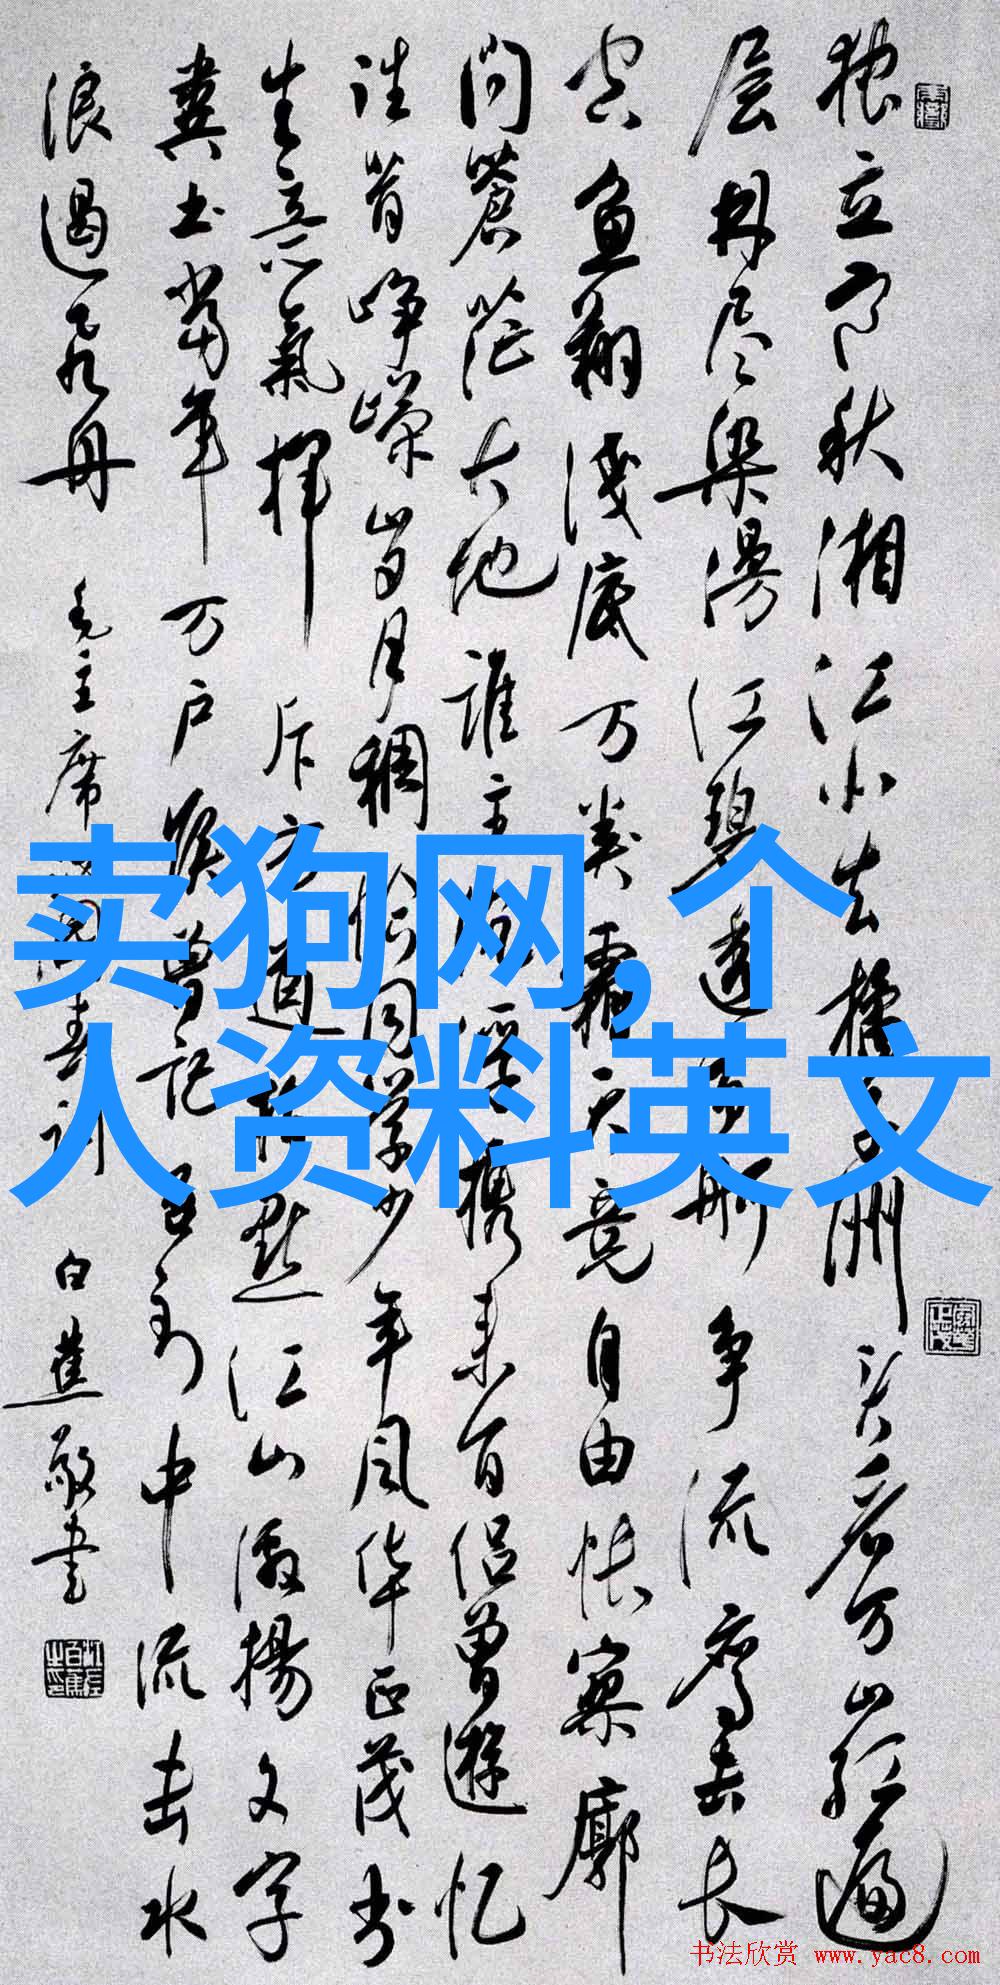 独立寒秋湘江北去橘子洲头看万山红遍
层林尽染漫江碧透百舸争流鹰击长
空鱼翔浅底万类霜天竞自由怅寥廓
问蒼茫大地谁主沉浮携来百侣曾遊忆
往昔峥嵘岁月稠恰同学少年风华正茂书
生意氣挥斥方遒指點江山激揚文字
粪土当年万户侯曾记否到中流击水
浪遏飞舟 毛主席沁园春词 白蕉敬书
卖狗网,个
人资料英文
书法欣赏 www.yac8.com